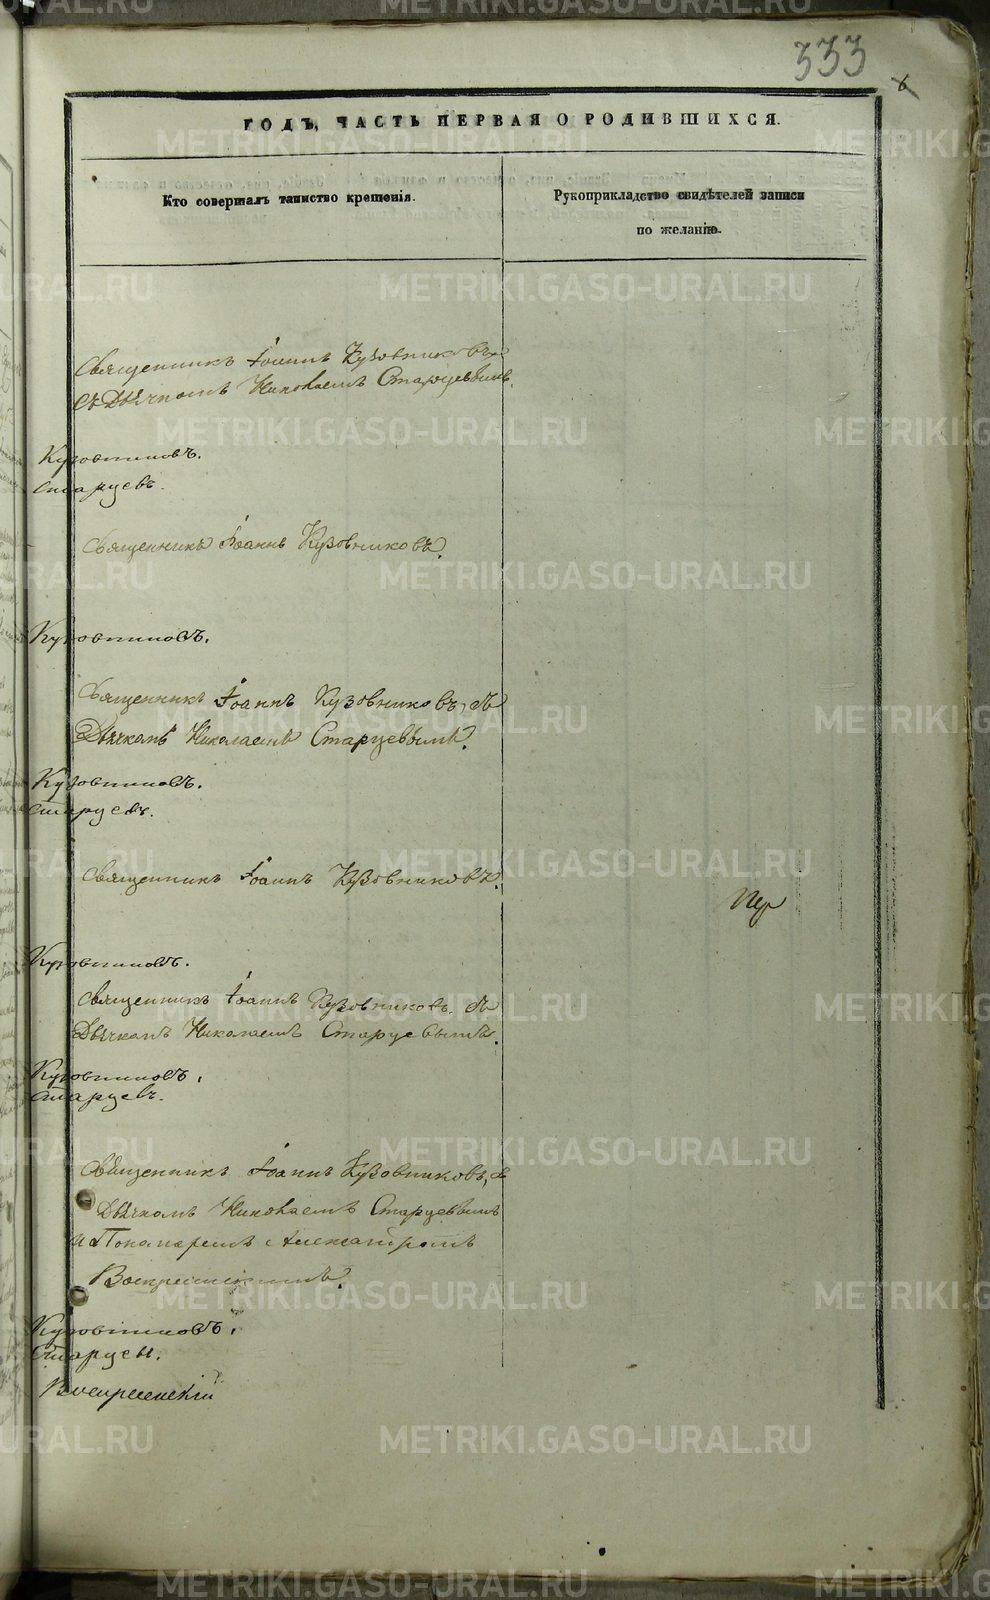 333
6
ГОДЪ, ЧАСТЬ ПЕРВАЯ О РОДИВШИХСЯ.
Кто совершалъ таинство крещенія.
Рукоприкладство свидѣтелей записи
по желанію.
Священникъ Іоаннъ Кузовниковъ
съ Дьячкомъ Николаемъ Старцевымъ.
Кузовниковъ.
Старцевъ.
Священникъ Іоаннъ Кузовниковъ.
Кузовниковъ.
Священникъ Іоаннъ Кузовниковъ, съ
Дьячкомъ Николаемъ Старцевымъ.
Кузовниковъ.
Старцевъ.
Священникъ Іоаннъ Кузовниковъ.
Кузовниковъ.
Священникъ Іоаннъ Кузовниковъ, съ
Дьячкомъ Николаемъ Старцевымъ.
Кузовниковъ.
Старцевъ.
Священникъ Іоаннъ Кузовниковъ, съ
Дьячкомъ Николаемъ Старцевымъ
и Пономаремъ Александромъ
Воскресенскимъ.
Кузовниковъ.
Старцевъ.
Воскресенскій
METRIKI.GASO-URAL.RU